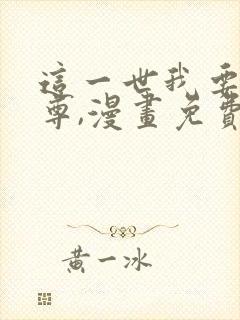 這一世我要
尊,漫畫免費
黃一冰